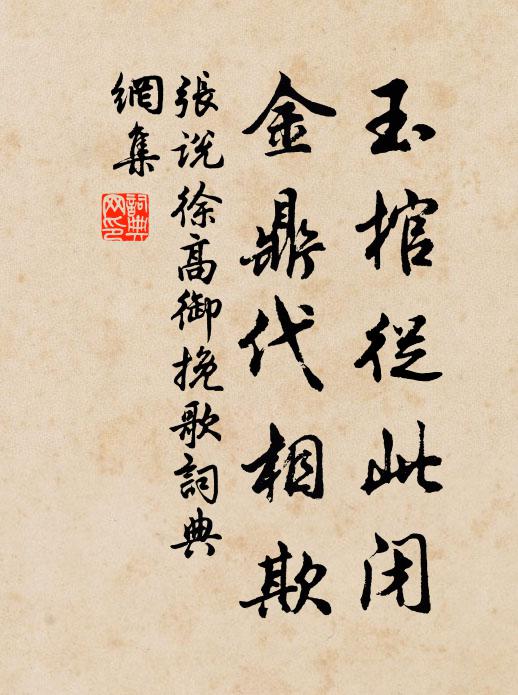 玉棺従此闭
金鼎代相欺
張说徐高御挽歌詞典
網集
詞典
网印